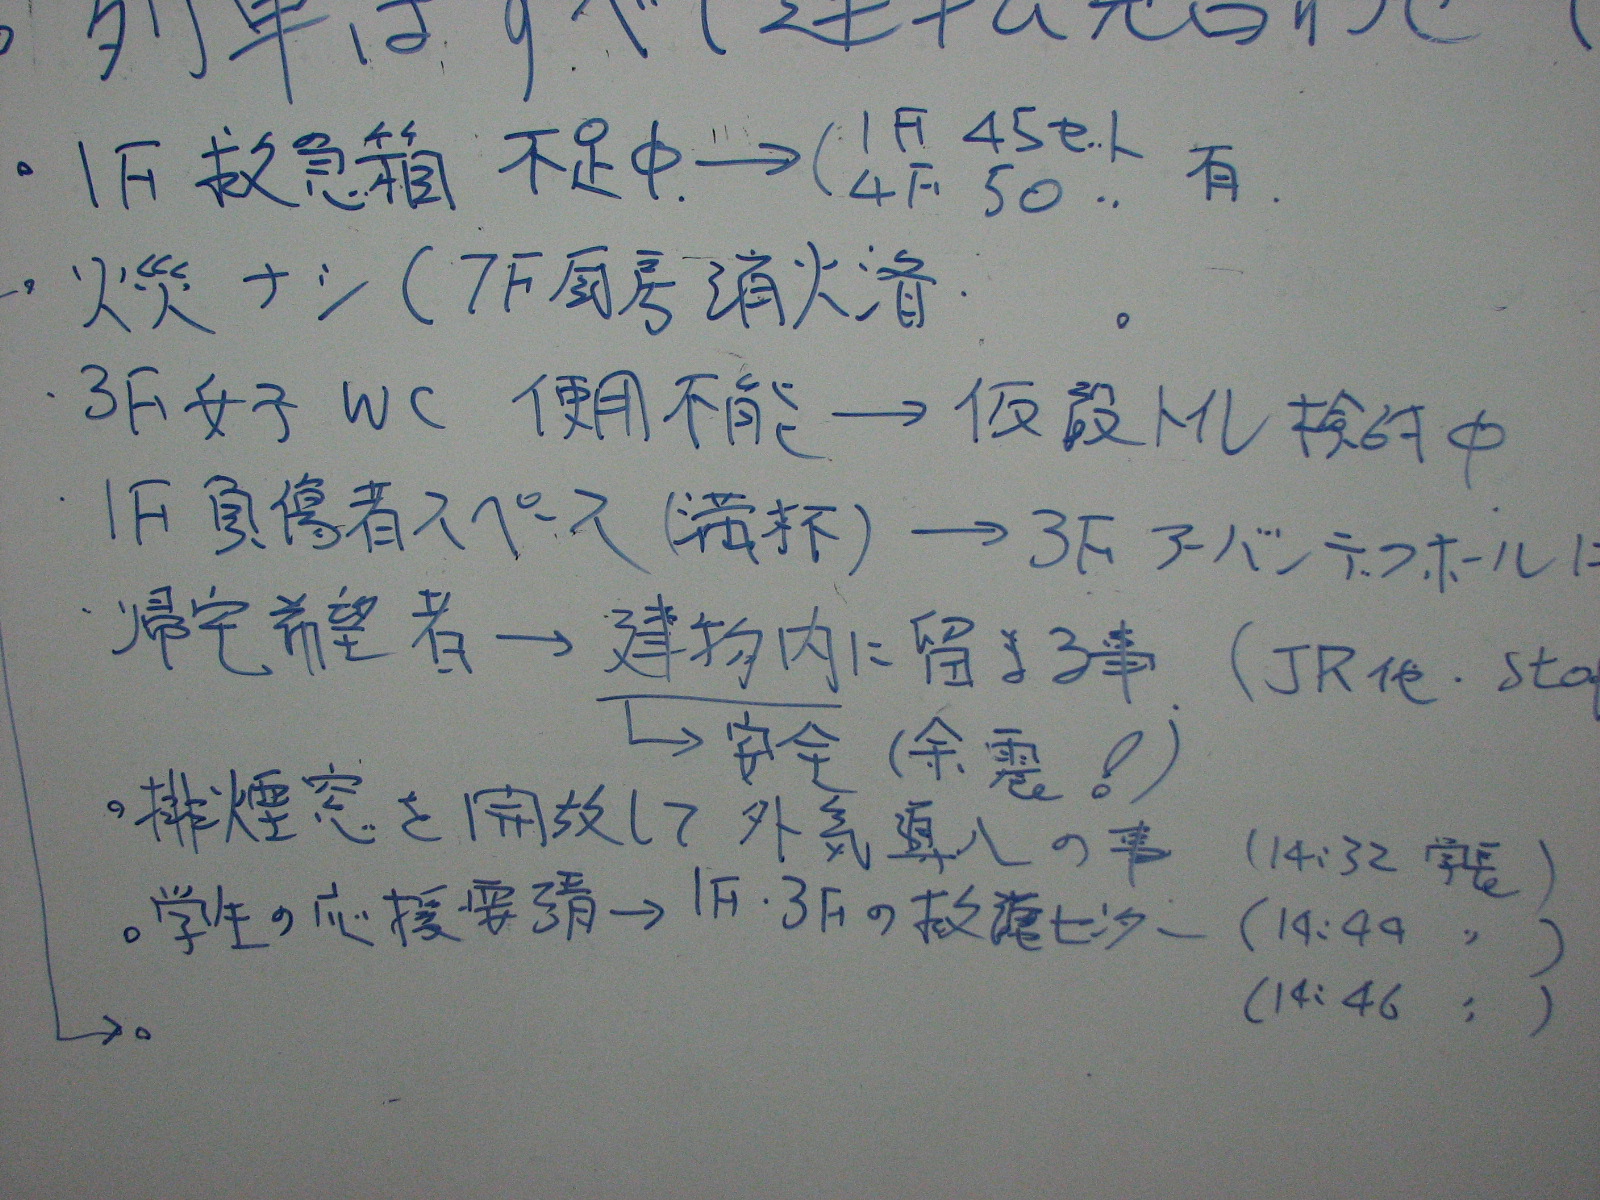 列車はすべて運転見合わせ (
・1F 救急箱 不足中. → ( 1F 45セット 有.
4F 50 〃
・火災 ナシ ( 7F厨房 消火済.
・3F女子 WC 使用不能 → 仮設トイレ 検討中
・1F 負傷者スペース (満杯) → 3F アーバンテックホールに
・帰宅希望者 → 建物内に留まる事 (JR他.
→ 安全 (余震!)
。排煙窓を開放して外気導入の事 (14:32 学長)
。学生の応援要請 → 1F・3Fの救護センター (14:44 〃 )
(14:46 〃 )
→ 。